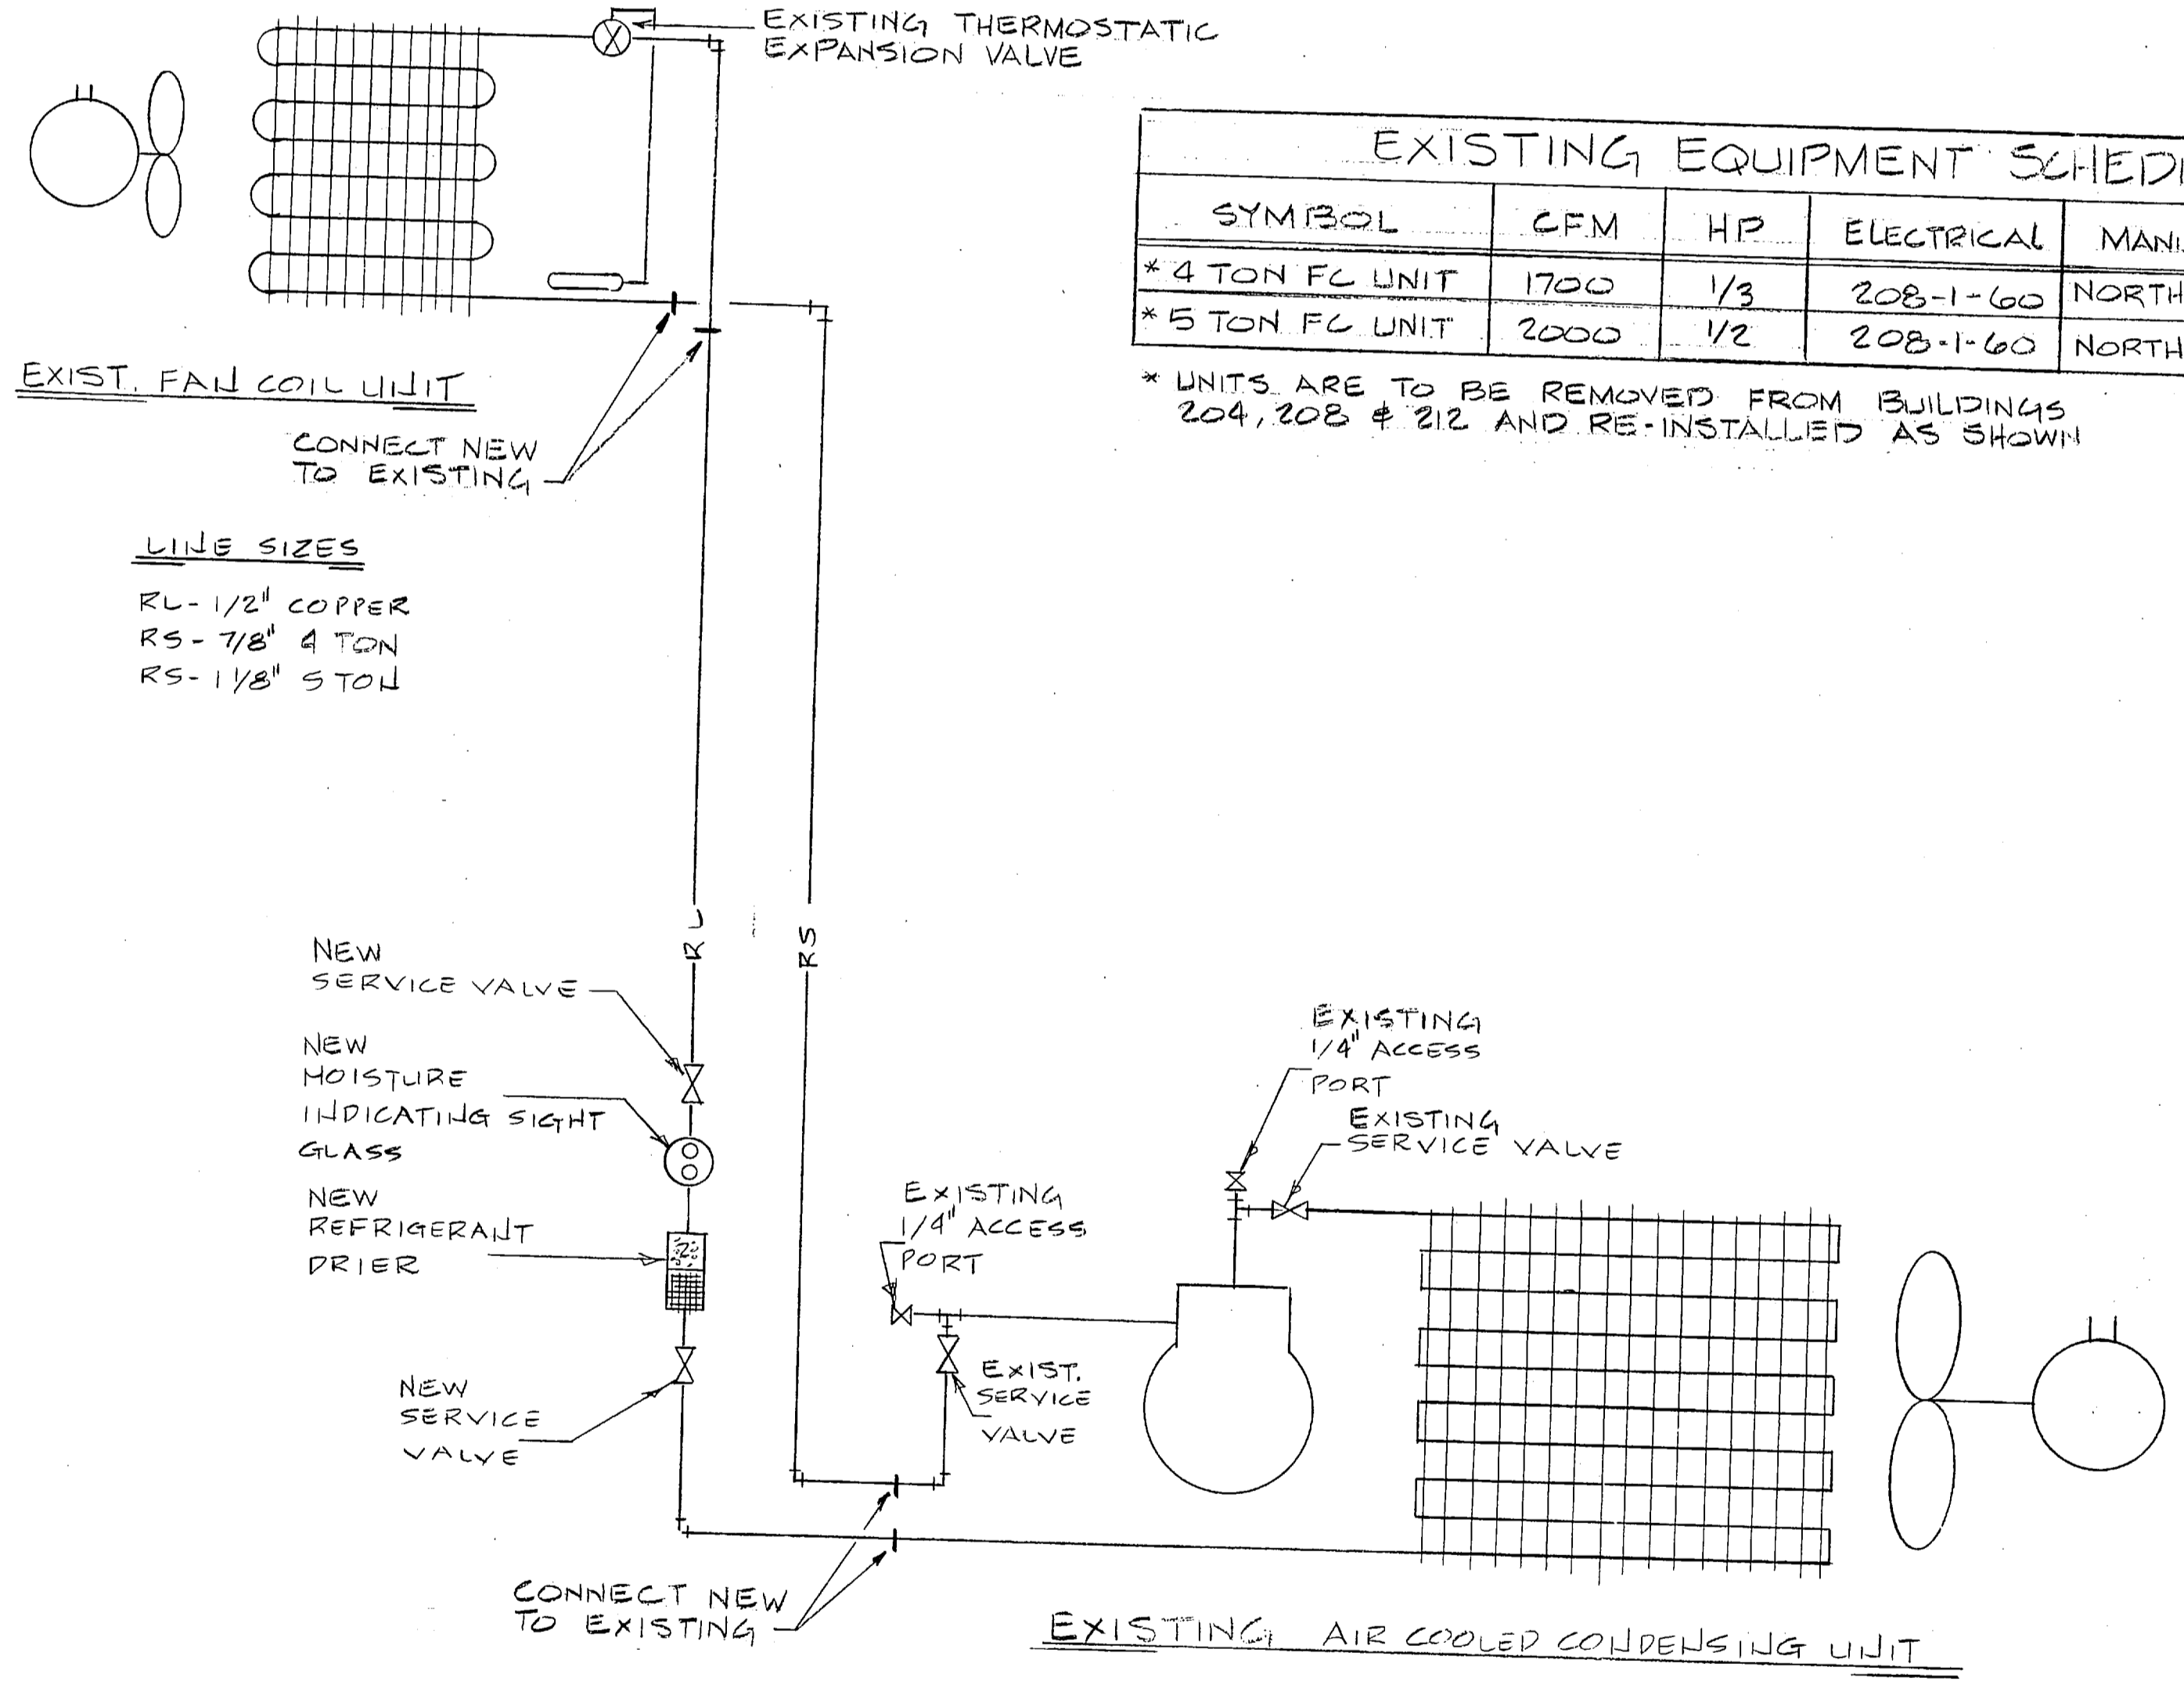 EXISTING THERMOSTATIC
EXPANSION VALVE
EXISTING EQUIPMENT
SYMBOL CFM HP ELECTRICAL
* 4 TON FC UNIT 1700 1/3 208-1-60 NORTH
* 5 TON FC UNIT 2000 1/2 208-1-60 NORTH
* UNITS ARE TO BE REMOVED FROM BUILDINGS
204, 208 & 212 AND RE-INSTALLED AS SHOWN
EXIST. FAN COIL UNIT
CONNECT NEW
TO EXISTING
LINE SIZES
RL- 1/2" COPPER
RS- 7/8" 4 TON
RS- 1 1/8" 5 TON
RL
RS
NEW
SERVICE VALVE
NEW
MOISTURE
INDICATING SIGHT
GLASS
NEW
REFRIGERANT
DRIER
NEW
SERVICE
VALVE
EXISTING
1/4" ACCESS
PORT
EXISTING
SERVICE VALVE
EXISTING
1/4" ACCESS
PORT
EXIST.
SERVICE
VALVE
CONNECT NEW
TO EXISTING
EXISTING AIR COOLED CONDENSING UNIT